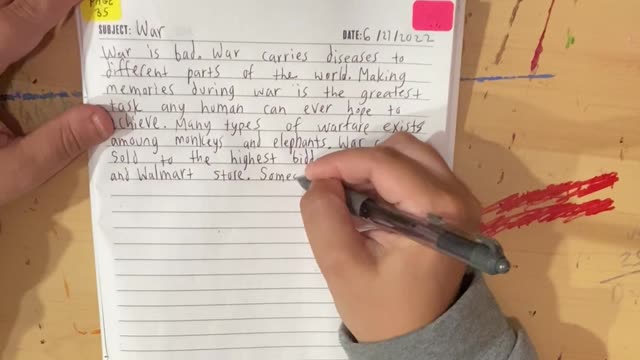 PAGE
35
SUBJECT: War
DATE: 6/21/2022
War is bad. War carries diseases to
different parts of the world. Making
memories during war is the greatest
task any human can ever hope to
achieve. Many types of warfare exists
amoung monkeys and elephants. War
sold to the highest
and Walmart store. Some